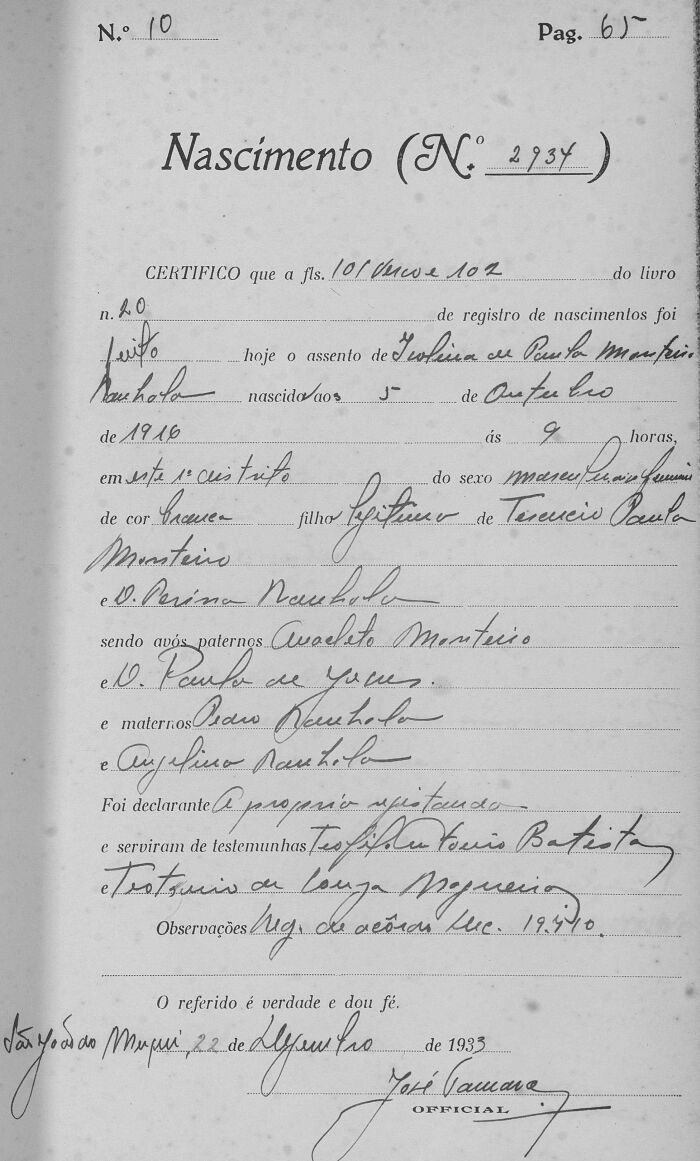 N.º 10 Pag. 65
Nascimento (N.º 2934)
CERTIFICO que a fls. 101 verso e 102 do livro
n. 20 de registro de nascimentos foi
feito hoje o assento de Isolina de Paula Monteiro
Nanhola nascido aos 5 de Outubro
de 1916 ás 9 horas,
em este 1º districto do sexo
de cor branca filho legitimo de Paula
Monteiro
e D. Nanhola
sendo avós paternos Anacleto Monteiro
e D. Paula de
e maternos Pedro Nanhola
e Angelina Nanhola
Foi declarante A propria registanda
e serviram de testemunhas Batista
e de Souza Nogueira
Observações Reg. de acôrdo Dec. 19.710.
O referido é verdade e dou fé.
São João do Muqui, 22 de Dezembro de 1933
José Camara
OFFICIAL